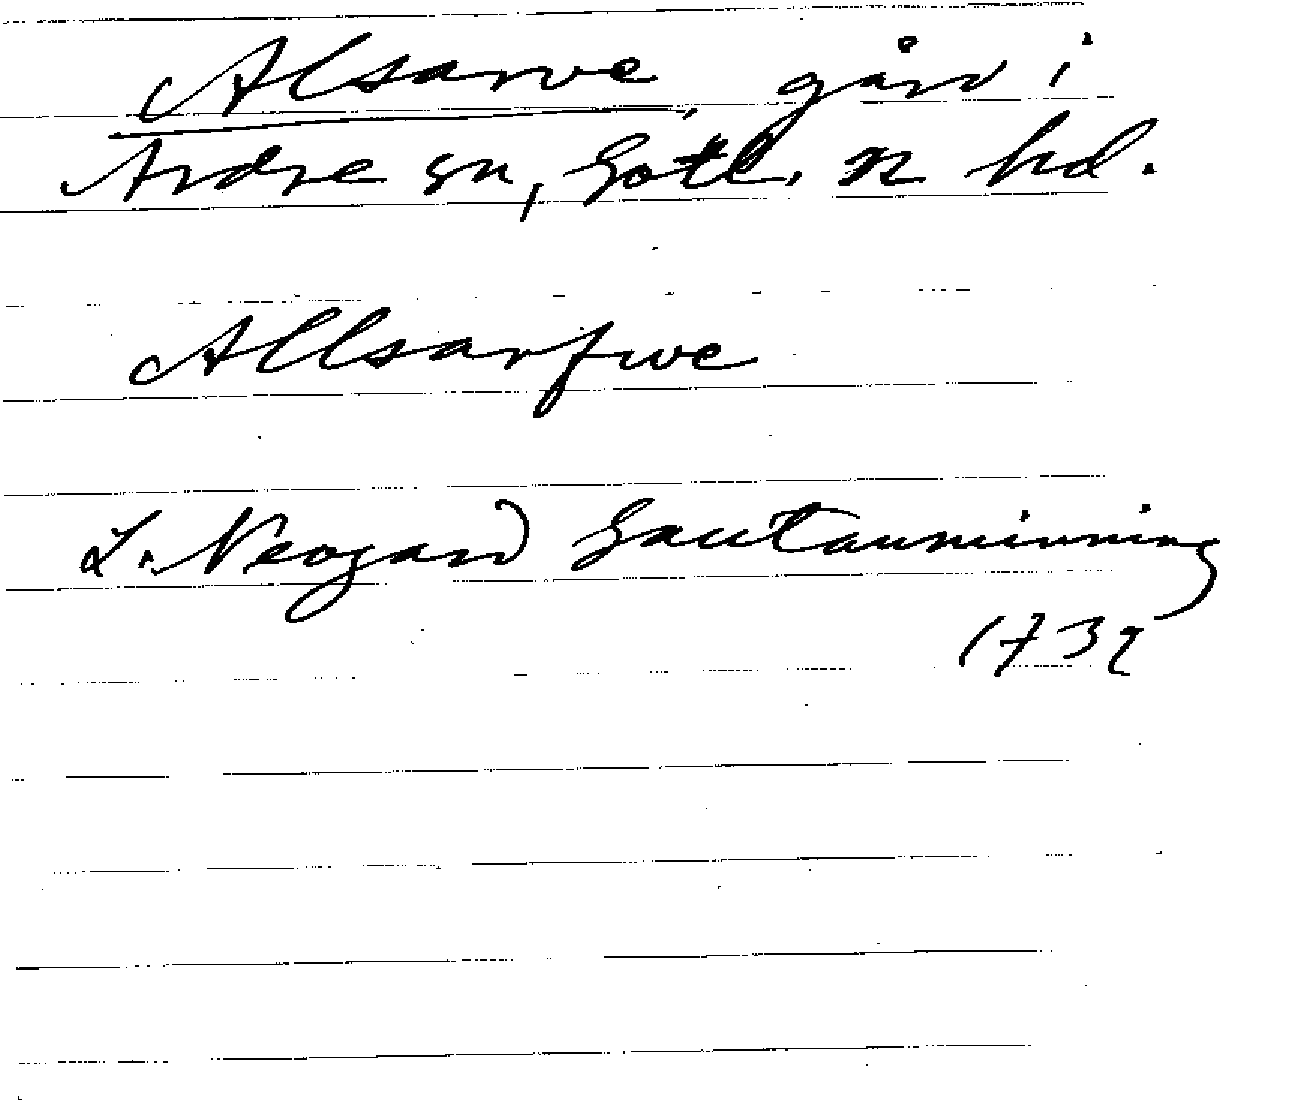 Alsarve, gård i
Ardre sn, Gotl. n hd.
Allsarfwe
L. Neogard Gautauminning
1732